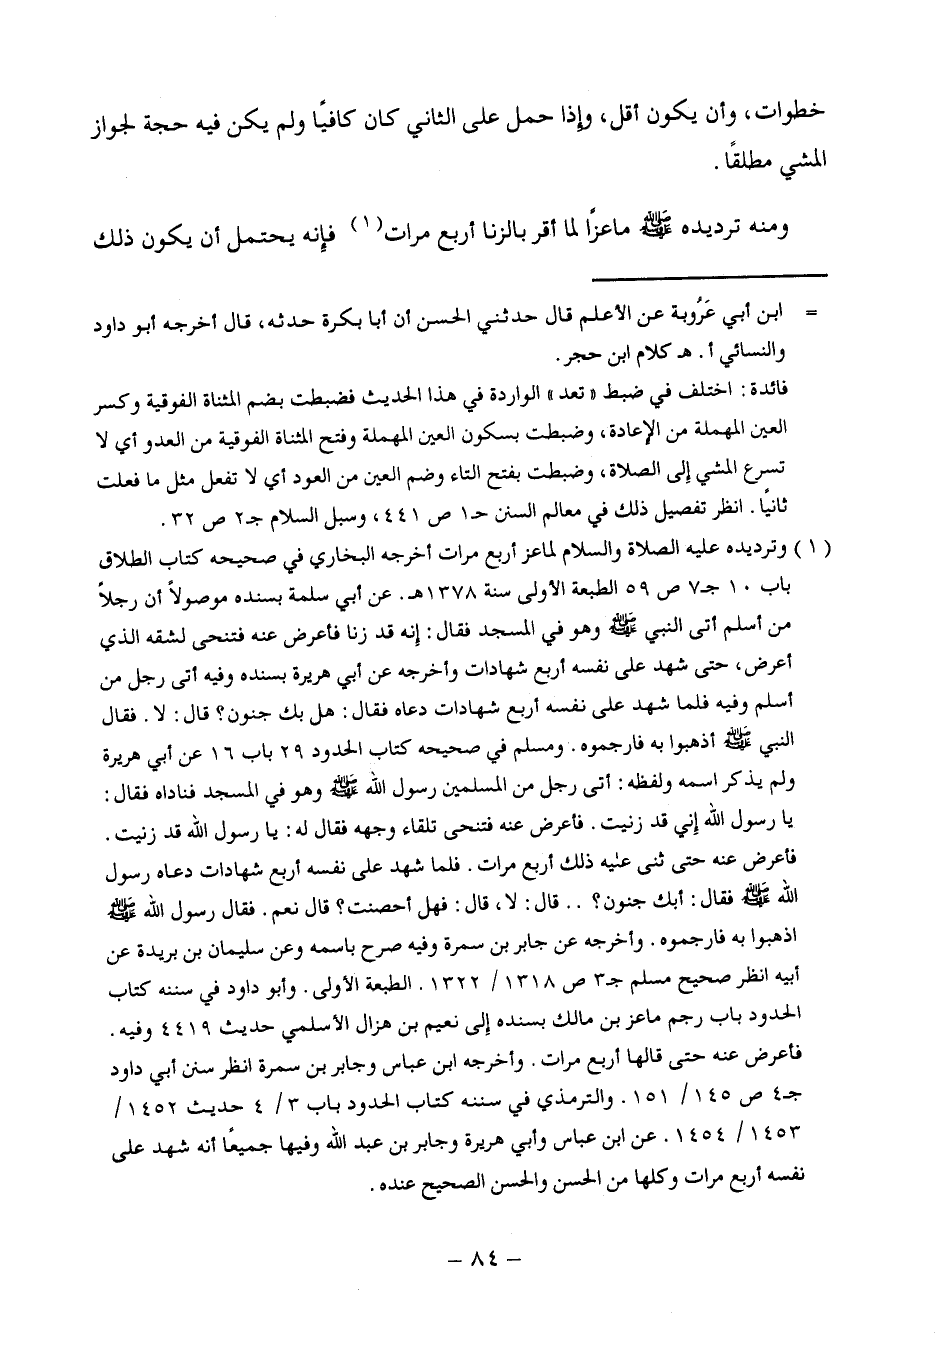 خطوات، وأن يكون أقل، وإذا حمل على الثاني كان كافيًا ولم يكن فيه حجة لجواز
المشي مطلقًا.
ومنه ترديده ﷺ ماعزًا لما أقر بالزنا أربع مرات(١) فإنه يحتمل أن يكون ذلك
= ابن أبي عَرُوبة عن الأعلم قال حدثني الحسن أن أبا بكرة حدثه، قال أخرجه أبو داود
والنسائي أ. هـ كلام ابن حجر.
فائدة: اختلف في ضبط «تعد» الواردة في هذا الحديث فضبطت بضم المثناة الفوقية وكسر
العين المهملة من الإعادة، وضبطت بسكون العين المهملة وفتح المثناة الفوقية من العدو أي لا
تسرع المشي إلى الصلاة، وضبطت بفتح التاء وضم العين من العود أي لا تفعل مثل ما فعلت
ثانيًا. انظر تفصيل ذلك في معالم السنن حـ١ ص ٤٤١، وسبل السلام جـ٢ ص ٣٢.
(١) وترديده عليه الصلاة والسلام لماعز أربع مرات أخرجه البخاري في صحيحه كتاب الطلاق
باب ١٠ جـ٧ ص ٥٩ الطبعة الأولى سنة ١٣٧٨هـ. عن أبي سلمة بسنده موصولاً أن رجلاً
من أسلم أتى النبي ﷺ وهو في المسجد فقال: إنه قد زنا فأعرض عنه فتنحى لشقه الذي
أعرض، حتى شهد على نفسه أربع شهادات وأخرجه عن أبي هريرة بسنده وفيه أتى رجل من
أسلم وفيه فلما شهد على نفسه أربع شهادات دعاه فقال: هل بك جنون؟ قال: لا. فقال
النبي ﷺ أذهبوا به فارجموه. ومسلم في صحيحه كتاب الحدود ٢٩ باب ١٦ عن أبي هريرة
ولم يذكر اسمه ولفظه: أتى رجل من المسلمين رسول الله ﷺ وهو في المسجد فناداه فقال:
يا رسول الله إني قد زنيت. فأعرض عنه فتنحى تلقاء وجهه فقال له: يا رسول الله قد زنيت.
فأعرض عنه حتى ثنى عليه ذلك أربع مرات. فلما شهد على نفسه أربع شهادات دعاه رسول
الله ﷺ فقال: أبك جنون؟ .. قال: لا، قال: فهل أحصنت؟ قال نعم. فقال رسول الله ﷺ
اذهبوا به فارجموه. وأخرجه عن جابر بن سمرة وفيه صرح باسمه وعن سليمان بن بريدة عن
أبيه انظر صحيح مسلم جـ٣ ص ١٣١٨/ ١٣٢٢. الطبعة الأولى. وأبو داود في سننه كتاب
الحدود باب رجم ماعز بن مالك بسنده إلى نعيم بن هزال الأسلمي حديث ٤٤١٩ وفيه.
فأعرض عنه حتى قالها أربع مرات. وأخرجه ابن عباس وجابر بن سمرة انظر سنن أبي داود
جـ٤ ص ١٤٥/ ١٥١. والترمذي في سننه كتاب الحدود باب ٣/ ٤ حديث ١٤٥٢/
١٤٥٣/ ١٤٥٤. عن ابن عباس وأبي هريرة وجابر بن عبد الله وفيها جميعًا أنه شهد على
نفسه أربع مرات وكلها من الحسن والحسن الصحيح عنده.
- ٨٤ -